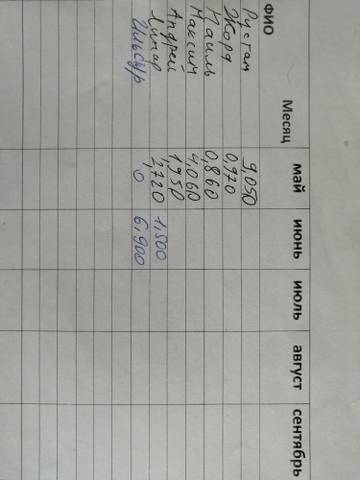 ФИО Месяц май июнь июль август сентябрь
Рустам 9,050
Жора 0,970
Наиль 0,860
Максим 4,060
Андрей 1,950
Линар 2,720 1,500
Ильсур 0 6,900